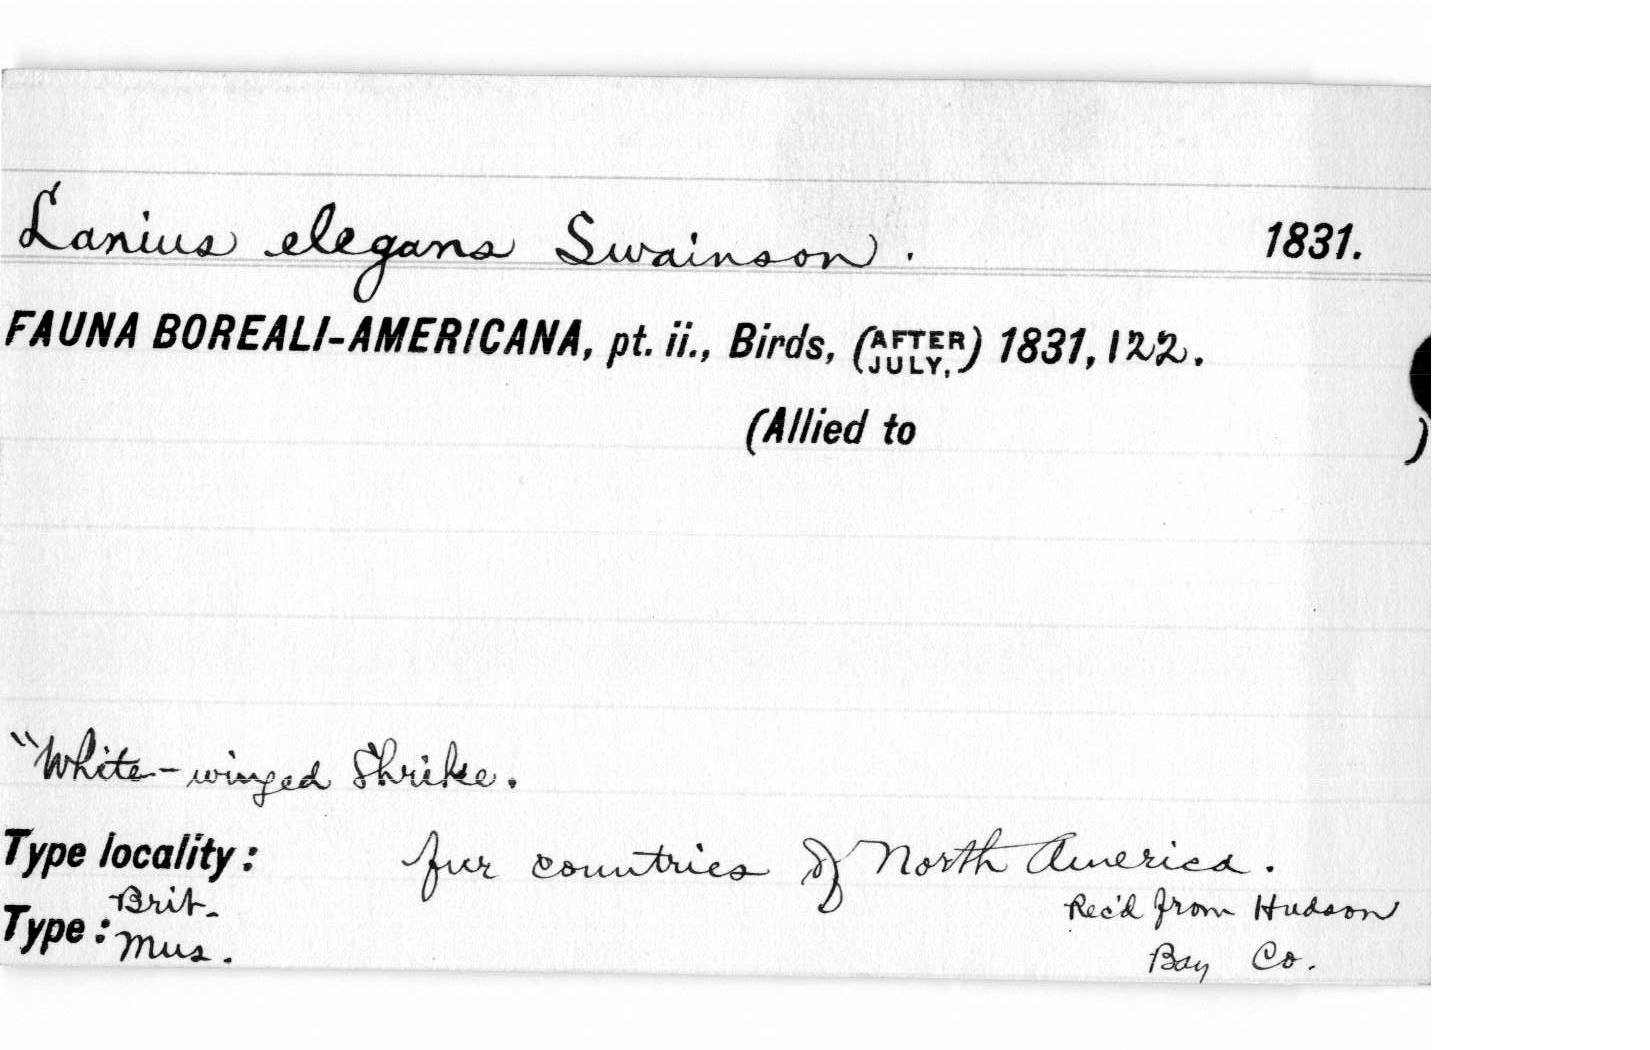 Lanius elegans Swainson. 1831.
FAUNA BOREALI-AMERICANA, pt. ii., Birds, (AFTER JULY,) 1831, 122.
(Allied to )
"White-winged Shrike.
Type locality: fur countries of North America.
Type: Brit. Mus.
Rec'd from Hudson
Bay Co.